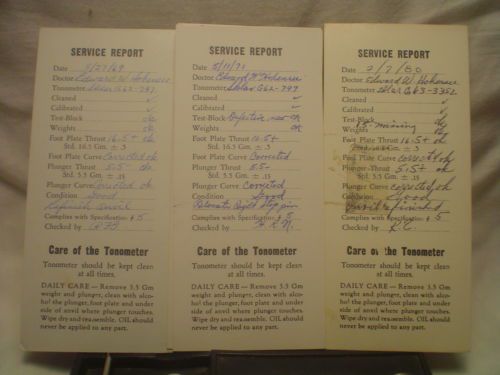 SERVICE REPORT
Date 9/27/69
Doctor Edward W. Hohensee
Tonometer Sklar G62-797
Cleaned ✓
Calibrated ✓
Test-Block ok
Weights ok
Foot Plate Thrust 16.5+ ok
Std. 16.5 Gm. ± .3
Foot Plate Curve Corrected ok
Plunger Thrust 5.5- ok
Std. 5.5 Gm. ± .15
Plunger Curve Corrected ok
Condition Good
Refinish Anvil
Complies with Specification # 5
Checked by
Care of the Tonometer
Tonometer should be kept clean
at all times.
DAILY CARE — Remove 5.5 Gm
weight and plunger, clean with alco-
hol the plunger, foot plate and under
side of anvil where plunger touches.
Wipe dry and reassemble. OIL should
never be applied to any part.
SERVICE REPORT
Date 5/11/71
Doctor Edward W. Hohensee
Tonometer Sklar G62-797
Cleaned ✓
Calibrated ✓
Test-Block Defective new ok
Weights ok
Foot Plate Thrust 16.5+
Std. 16.5 Gm. ± .3
Foot Plate Curve Corrected
Plunger Thrust 5.5-
Std. 5.5 Gm. ± .15
Plunger Curve Corrected
Condition Good
Complies with Specification # 5
Checked by
Care of the Tonometer
Tonometer should be kept clean
at all times.
DAILY CARE — Remove 5.5 Gm
weight and plunger, clean with alco-
hol the plunger, foot plate and under
side of anvil where plunger touches.
Wipe dry and reassemble. OIL should
never be applied to any part.
SERVICE REPORT
Date 2/7/80
Doctor Edward W. Hohensee
Tonometer Sklar G63-3352
Cleaned ✓
Calibrated ✓
Test-Block ok
Weights missing ok
Foot Plate Thrust 16.5+ ok
± .3
Foot Plate Curve corrected ok
Plunger Thrust 5.5+ ok
Std. 5.5 Gm. ± .15
Plunger Curve corrected ok
Condition Good
refinished
Complies with Specification # 5
Checked by R.C.
Care of the Tonometer
Tonometer should be kept clean
at all times.
DAILY CARE — Remove 5.5 Gm
weight and plunger, clean with alco-
hol the plunger, foot plate and under
side of anvil where plunger touches.
Wipe dry and reassemble. OIL should
never be applied to any part.